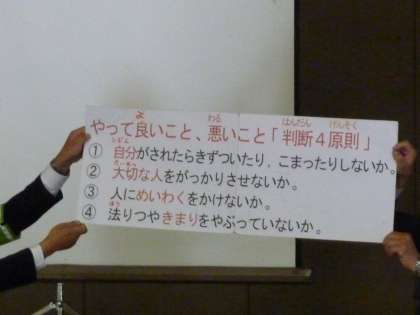 やって良いこと、悪いこと「判断4原則」
① 自分がされたらきずついたり，こまったりしないか。
② 大切な人をがっかりさせないか。
③ 人にめいわくをかけないか。
④ 法りつやきまりをやぶっていないか。